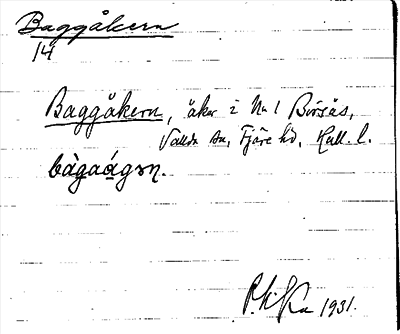 Baggåkern
14
Baggåkern, åker i No 1 Börsås,
Vallda sn, Fjäre hd, Hall. l.
bàgaágɜn.
1931.